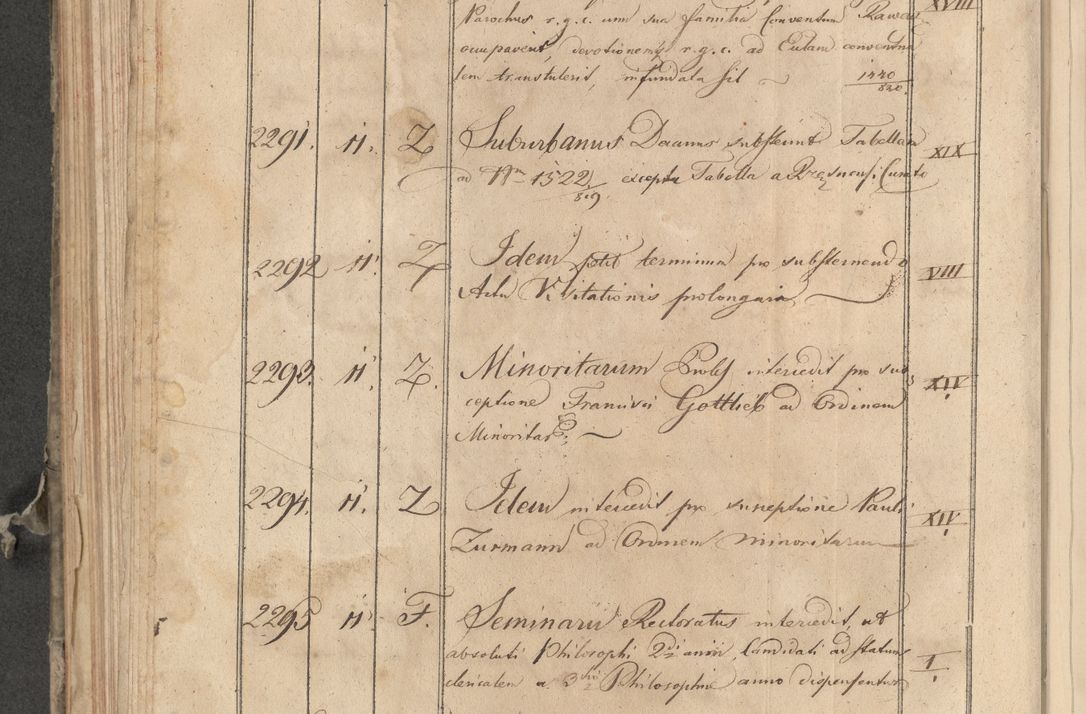 XVIII
Parochus r. g. c. una sua familia Conventum Rawen
occupaverit, devotionemq r. g. c. ad Eulam conventua
lem transtulerit, infundata sit 1440/820
2291. 11. Z Suburbanus Decanus substernit Tabellam XIX
ad Nrm 1522/819 excepta Tabella a Curato
2292 11. Z Idem petit terminum pro substernendo VIII
Actu Visitationis prolongari
2293. 11. Z. Minoritarum Proles intercedit pro sus XIV
ceptione Francisci Gottlieb ad Ordinem
Minoritar:
2294. 11. Z Idem intercedit pro susceptione Pauli XIV
Zurmann ad Ordinem Minoritarum
2295 11. F. Seminarii Rectoratus intercedit, ut
absoluti Philosophi 2di anni, Candidati ad statum I
clericalem a 3tio Philosophiae anno dispensentur